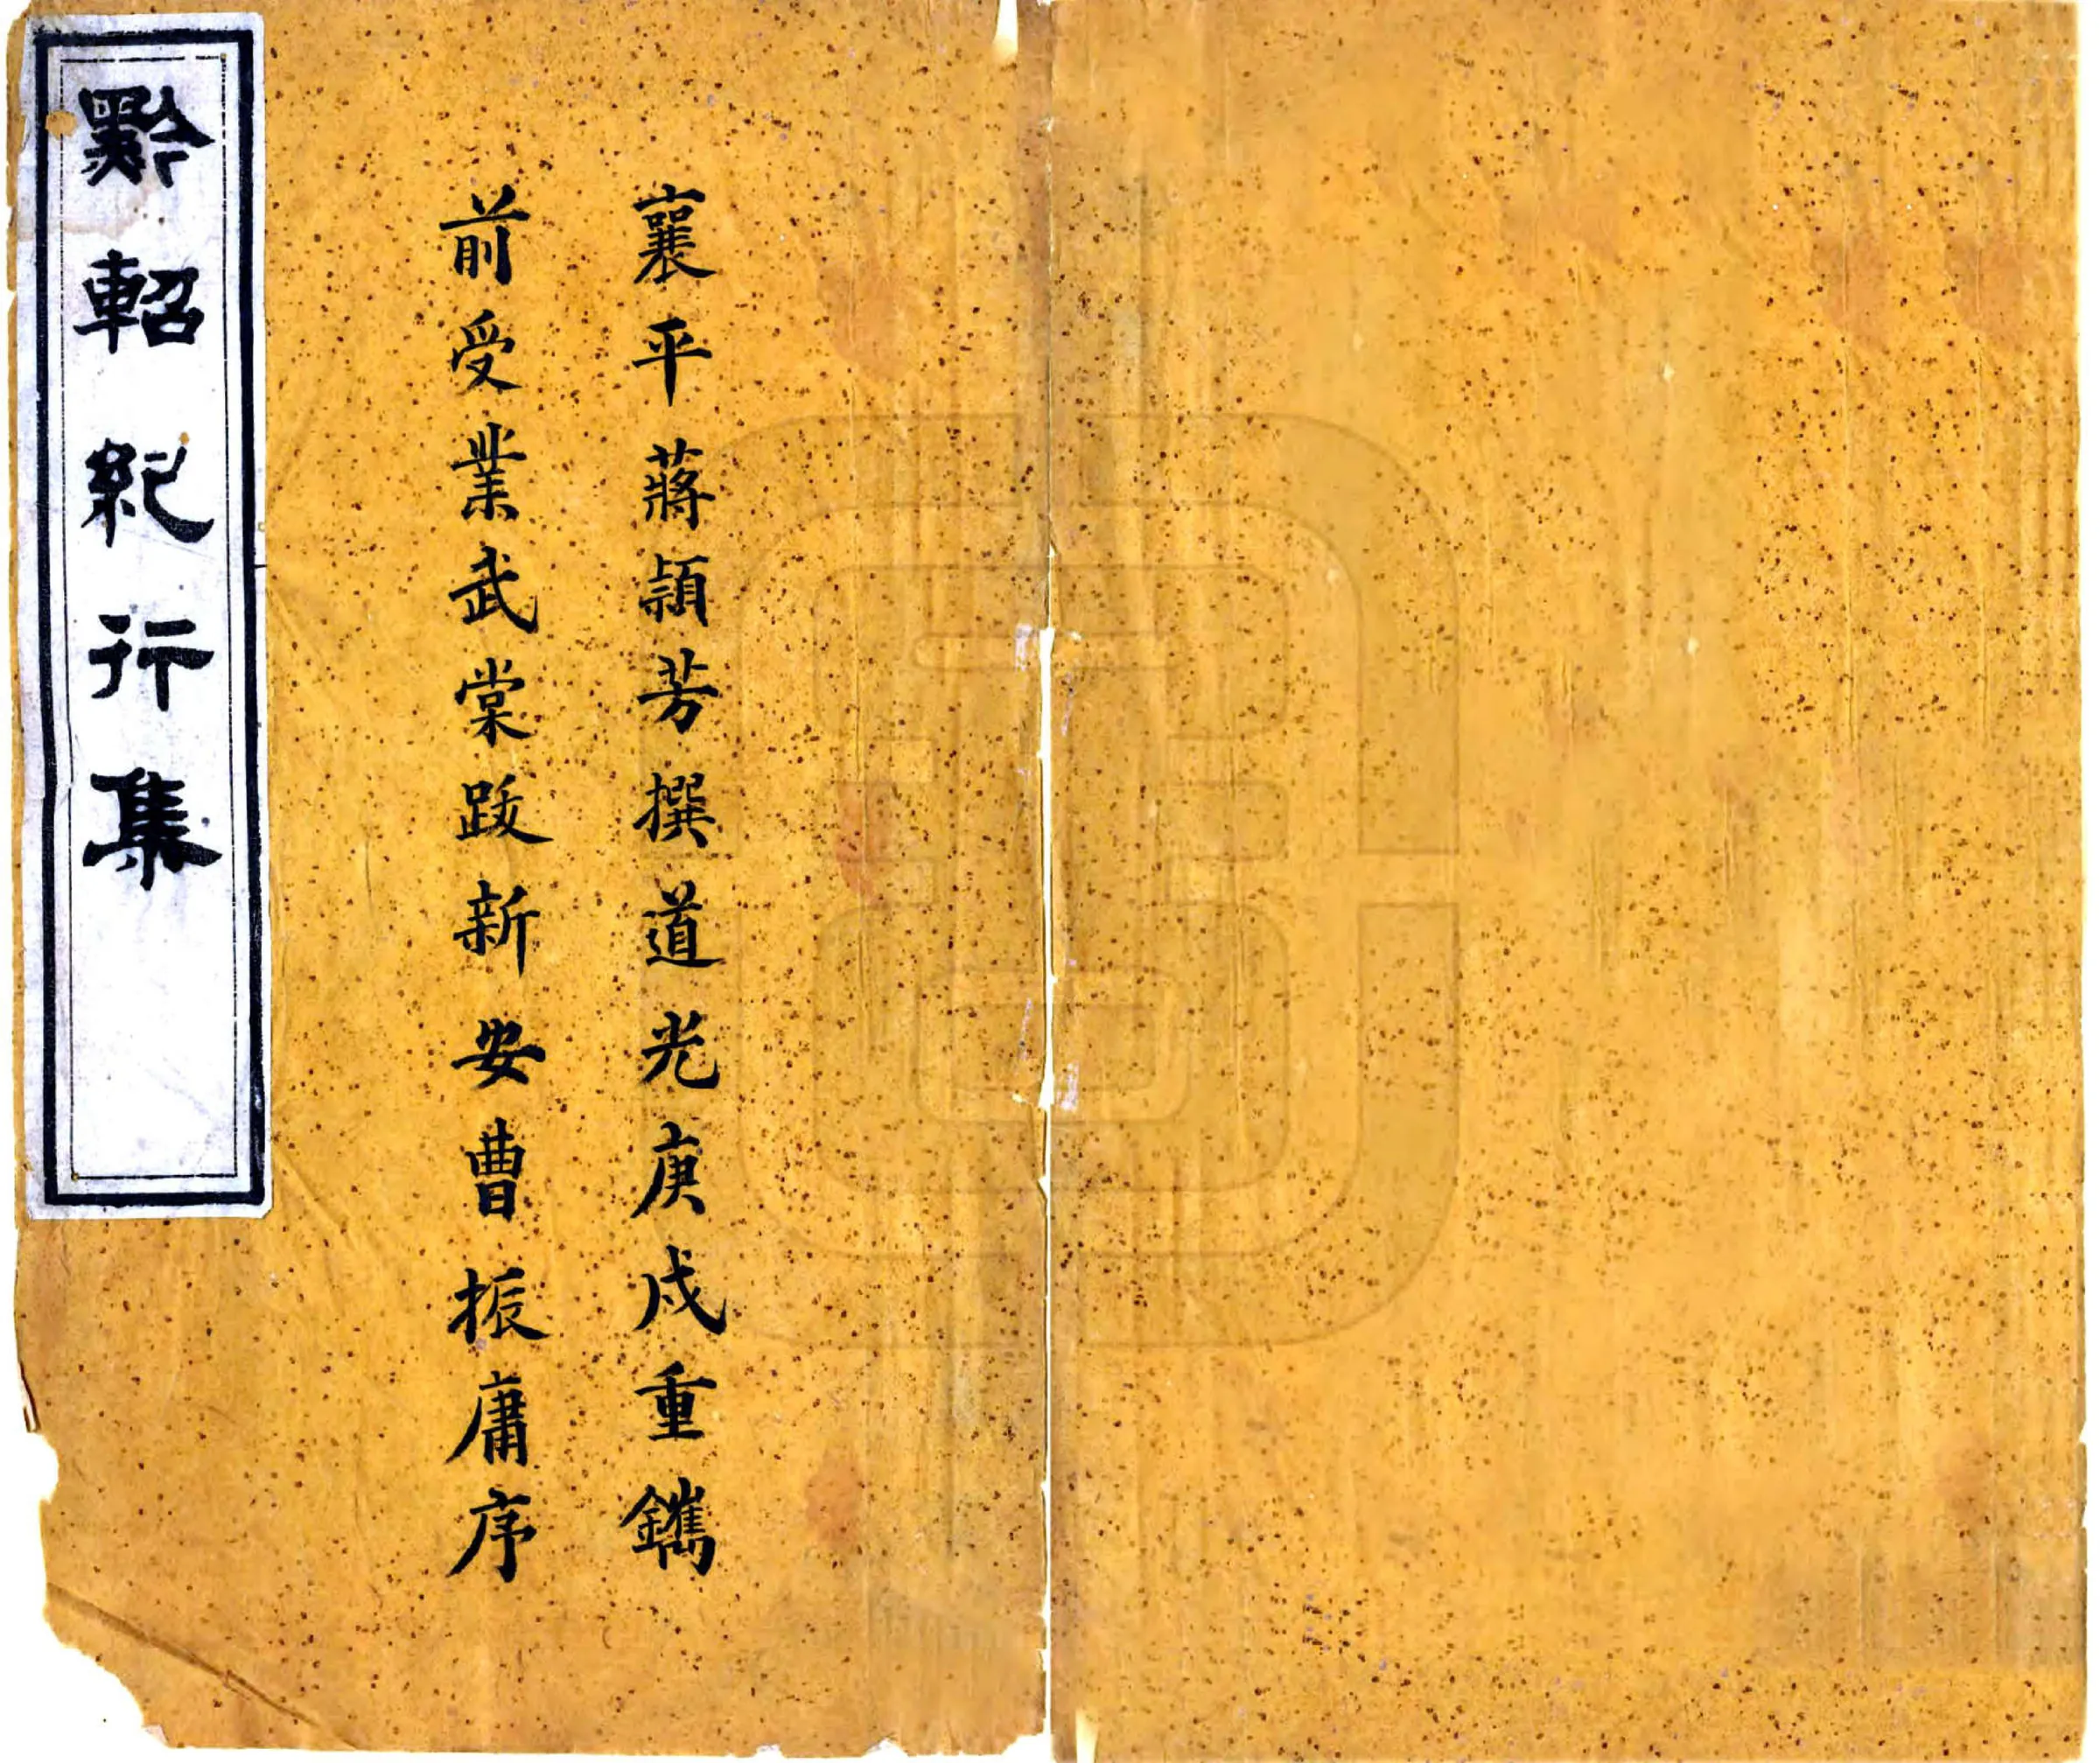 襄平蔣頴芳撰道光庚戍重鐫
前受業武棠跋新安曹振庸序
黔軺紀行集